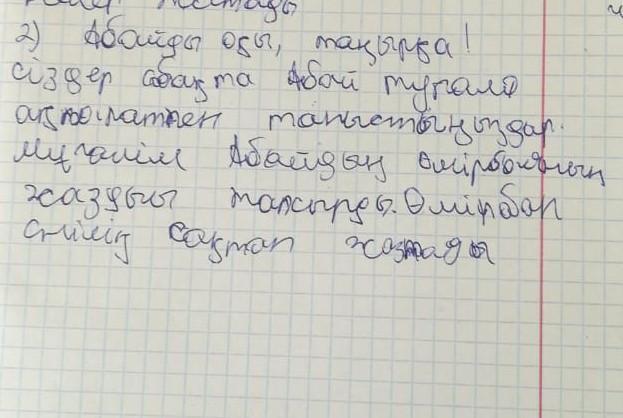 2) Абайды оқы, таңырқа!
сіздер сабақта Абай туралы
ақпаратпен таныстыңыздар.
Мұғалім Абайдың өмірбаянын
жаздыы тапсырды. Өмірбаян
стилін сақтап жазады